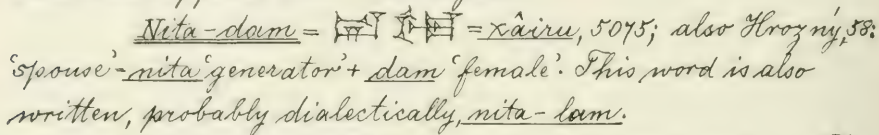 Nita-dam = 𒊩𒍑 𒁮 = xâiru, 5075; also Hrozný, 58:
'spouse'-nita 'generator' + dam 'female'. This word is also
written, probably dialectically, nita-lam.